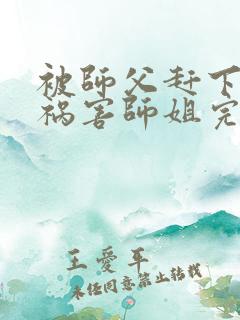 被師父赶下
祸害師姐完
王愛平
未任同意禁止转载